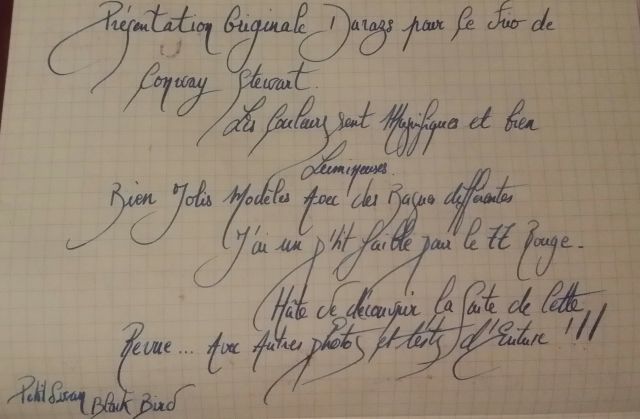 Présentation Originale Durazs pour le Trio de
Conway Stewart.
Les Couleurs sont Magnifiques et bien
Lumineuses.
Bien Jolis Modèles Avec des Bagues différentes
J'ai un p'tit faible pour le 77 Rouge.
Hâte de découvrir la suite de Cette
Revue... Avec Autres photos et tests d'Encre !!!
Petit Swan
Black Bird